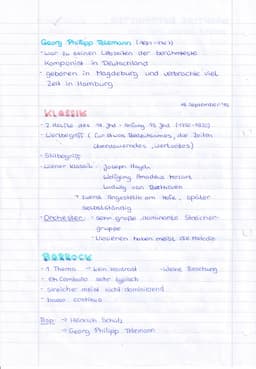 Georg Philipp Telemann (1681-1767)
- war zu seinen Lebzeiten der berühmteste
Komponist in Deutschland
- geboren in Magdeburg und verbrachte viel
Zeit in Hamburg
September
KLASSIK
- 2. Hälfte des 18. Jhd - Anfang 19. Jhd (1770-1830)
- Wertbegriff (für etwas Bedeutsames, die Zeiten
überdauerndes, wertvolles)
- Stilbegriff
- Wiener Klassik: Joseph Haydn
Wolfgang Amadeus Mozart
Ludwig van Beethoven
→ zuerst Angestellte am Hofe, später
selbstständig
- Orchester: - sehr große dominante Streicher-
gruppe
- Violinen haben meist die Melodie
BAROCK
- 1 Thema → kein Kontrast - kleine Besetzung
- Ein Cembalo sehr typisch
- Streicher meist nicht dominierend
- basso continuo
Bsp → Heinrich Schütz
→ Georg Philipp Telemann